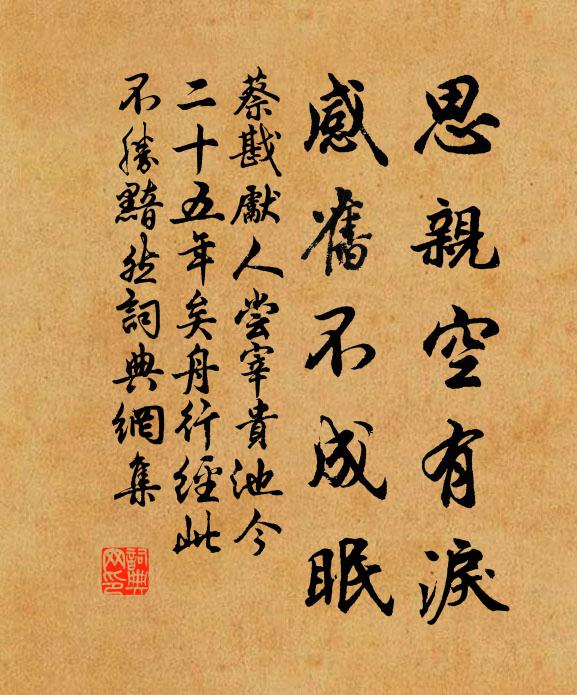 思親空有淚
感舊不成眠
蔡戡獻人嘗宰貴池今
二十五年矣舟行經此
不勝黯然詞典網集
詞典
网印